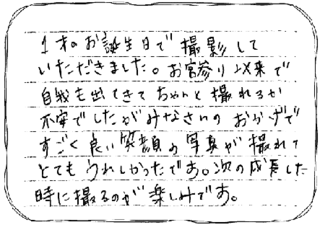 1才のお誕生日で撮影して
いただきました。お宮参り以来で
自我も出てきてちゃんと撮れるか
不安でしたがみなさんのおかげで
すごく良い笑顔の写真が撮れて
とてもうれしかったです。次の成長した
時に撮るのが楽しみです。